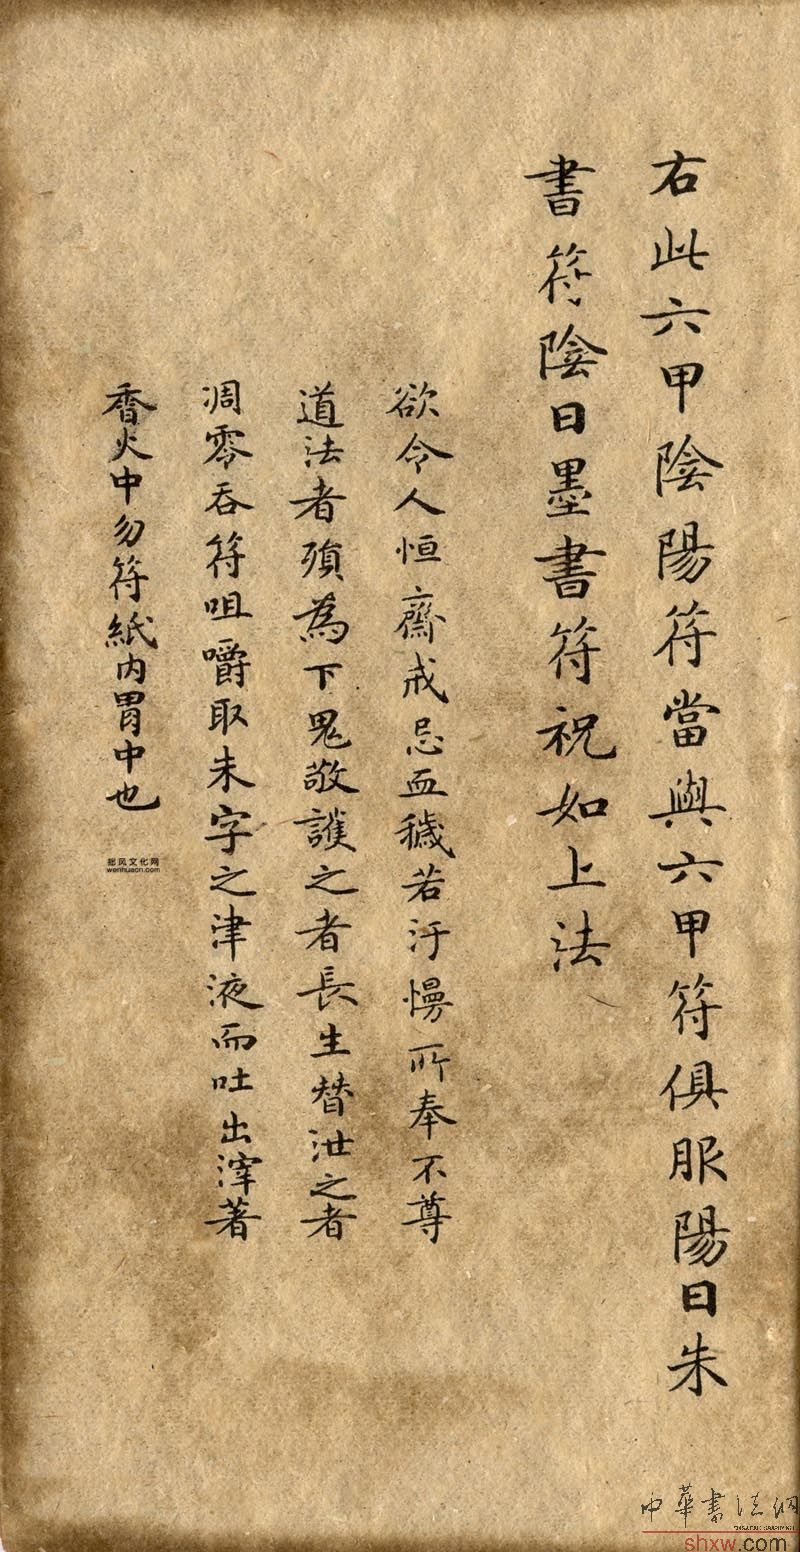 右此六甲陰陽符當與六甲符俱服陽日朱
書符陰日墨書符祝如上法
欲令人恒齋戒忌血穢若汙慢所奉不尊
道法者須為下鬼敬護之者長生替泄之者
凋零吞符咀嚼取朱字之津液而吐出滓著
香火中勿符紙內胃中也
拙风文化网
wenhuacn.com
中華書法網
shxw.com